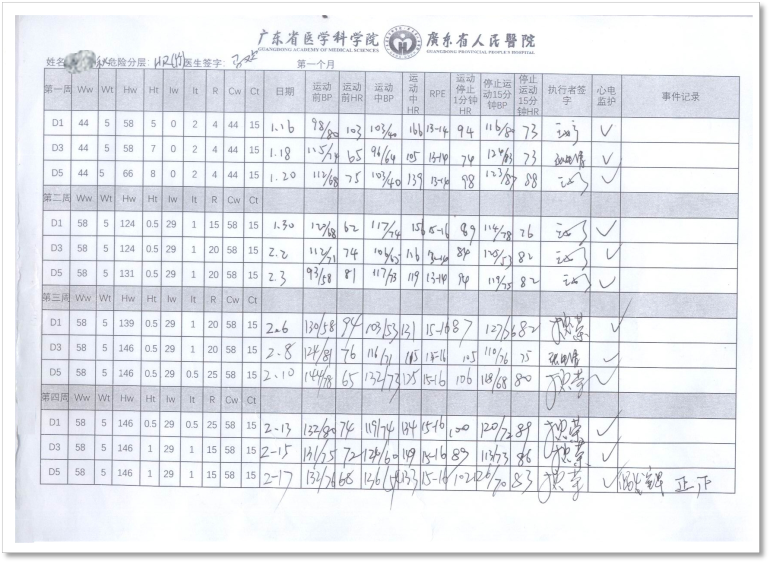 广东省医学科学院 廣东省人民醫院
GUANGDONG ACADEMY OF MEDICAL SCIENCES GUANGDONG PROVINCIAL PEOPLE'S HOSPITAL
姓名 危险分层: 医生签字: 第一个月
第一周 Ww Wt Hw Ht Iw It R Cw Ct 日期 运动前BP 运动前HR 运动中BP 运动中HR RPE 运动停止1分钟HR 停止运动15分钟BP 停止运动15分钟HR 执行者签字 心电监护 事件记录
D1 44 5 58 5 0 2 4 44 15 1.16 98/80 103 103/40 166 13-14 94 116/80 73 ✓
D3 44 5 58 7 0 2 4 44 15 1.18 65 96/64 105 13-14 74 73 ✓
D5 44 5 66 8 0 2 4 44 15 1.20 112/68 75 103/40 139 13-14 98 123/87 88 ✓
第二周 Ww Wt Hw Ht Iw It R Cw Ct
D1 58 5 124 0.5 29 1 15 58 15 1.30 120/68 62 117/74 156 15-16 89 114/78 76 ✓
D3 58 5 124 0.5 29 1 20 58 15 2.2 112/71 74 116 13-14 84 82 ✓
D5 58 5 131 0.5 29 1 20 58 15 2.3 93/58 81 119 13-14 94 119/75 82 ✓
第三周 Ww Wt Hw Ht Iw It R Cw Ct
D1 58 5 139 0.5 29 1 20 58 15 2.6 130/58 94 103/53 131 15-16 87 82 ✓
D3 58 5 146 0.5 29 1 20 58 15 2.8 124/81 76 116/71 15-16 105 110/76 75 ✓
D5 58 5 146 0.5 29 0.5 25 58 15 2.10 144/78 65 132/73 15-16 106 80 ✓
第四周 Ww Wt Hw Ht Iw It R Cw Ct
D1 58 5 146 0.5 29 0.5 25 58 15 2-13 132/80 74 119/74 134 15-16 100 120/72 89 ✓
D3 58 5 146 1 29 1 20 58 15 2-15 131/75 72 15-16 89 113/73 86 ✓
D5 58 5 146 1 29 1 15 58 15 2-17 132/76 68 133 15-16 102 83 ✓